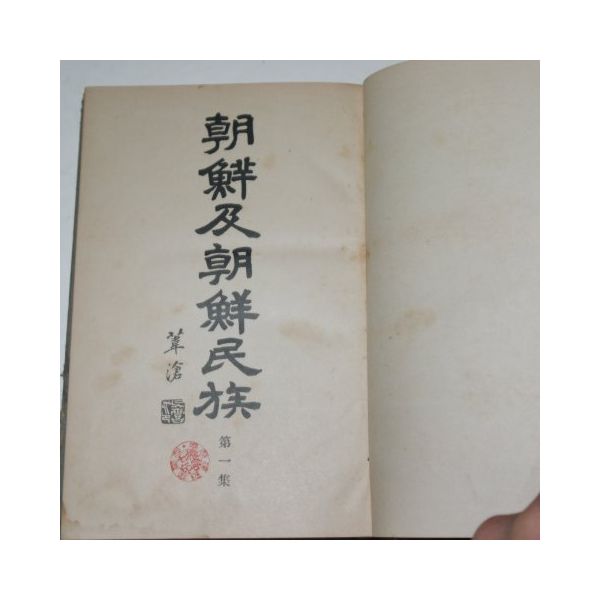 朝鮮及朝鮮民族
第一集
葦滄